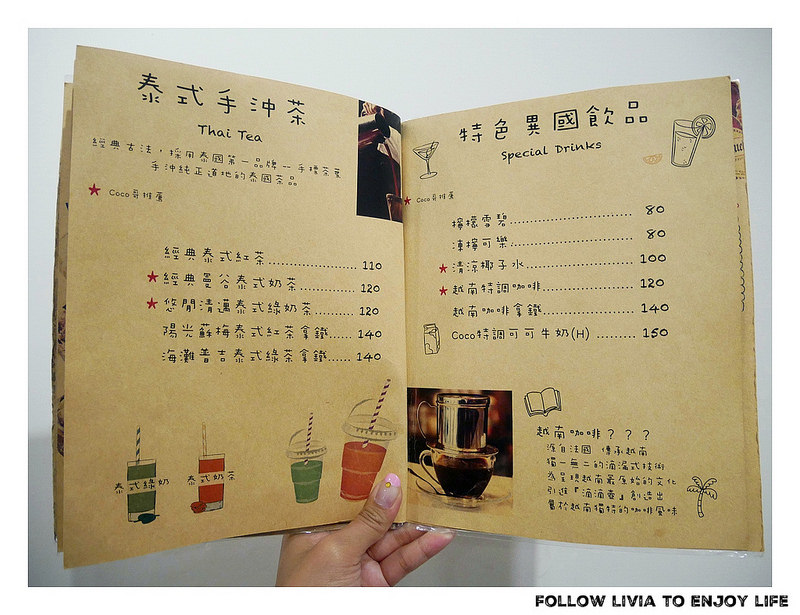 泰式手沖茶
Thai Tea
經典古法，採用泰國第一品牌--手標茶葉
手沖純正道地的泰國茶品
★ Coco哥推薦
經典泰式紅茶.................... 110
★ 經典曼谷泰式奶茶............. 120
★ 悠閒清邁泰式綠奶茶.......... 120
陽光蘇梅泰式紅茶拿鐵...... 140
海灘普吉泰式綠茶拿鐵...... 140
泰式綠奶
泰式奶茶
特色異國飲品
Special Drinks
★ Coco哥推薦
檸檬雪碧............................ 80
凍檸可樂............................ 80
★ 清涼椰子水......................... 100
★ 越南特調咖啡...................... 120
越南咖啡拿鐵...................... 140
Coco特調可可牛奶(H) ......... 150
越南咖啡？？？
源自法國 傳承越南
獨一無二的滴漏式技術
為呈現越南最原始的文化
引進『滴滴壺』創造出
屬於越南獨特的咖啡風味
FOLLOW LIVIA TO ENJOY LIFE